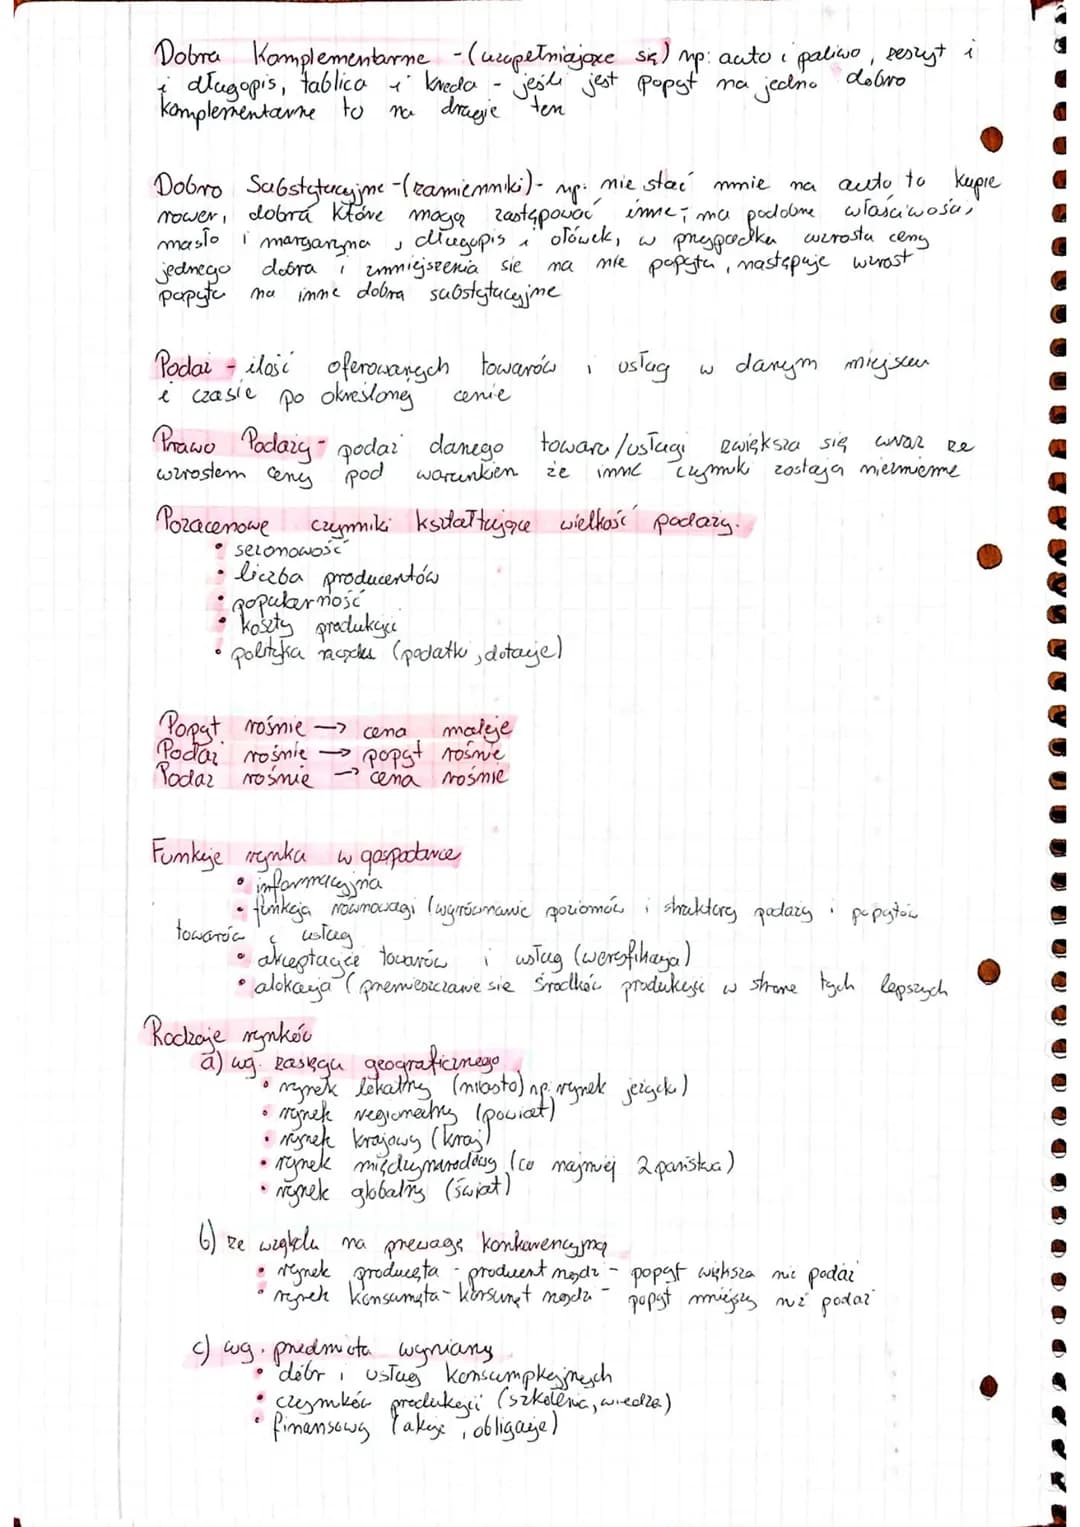 Dobra Komplementarne - (uzupełniające się) np: auto i paliwo, zeszyt i
i długopis, tablica i kreda - jeśli jest popyt na jedno dobro
komplementarne to na drugie ten
Dobro Substytucyjne - (zamienniki) - np: nie stać mnie na auto to kupie
rower, dobra które mogą zastępować inne i ma podobne właściwości,
masło i margaryna, długopis i ołówek, w przypadku wzrostu ceny
jednego dobra i zmniejszenia sie na nie popytu, następuje wzrost
popytu na inne dobra substytucyjne
Podaż - ilość oferowanych towarów i usług w danym miejscu
i czasie po określonej cenie
Prawo Podaży - podaż danego towaru/usługi zwiększa się wraz ze
wzrostem ceny pod warunkiem że inne czynniki zostają niezmienne
Pozacenowe czynniki kształtujące wielkość podaży.
• sezonowość
• liczba producentów
• popularność
• koszty produkcji
• polityka rządu (podatki, dotacje)
Popyt rośnie → cena maleje
Podaż rośnie → popyt rośnie
Podaż rośnie → cena rośnie
Funkcje rynku w gospodarce
• informacyjna
• funkcja równowagi (wyrównanie poziomów i struktury podaży i popytów
towarów i usług
• akceptujące towarów i usług (weryfikacja)
• alokacja (przemieszczanie sie środków produkcji w strone tych lepszych
Rodzaje rynków
a) wg. zasięgu geograficznego
• rynek lokalny (miasto) np. rynek jeżycki)
• rynek regionalny (powiat)
• rynek krajowy (kraj)
• rynek międzynarodowy (co najmniej 2 państwa)
• rynek globalny (świat)
b) ze względu na przewagę konkurencyjną
• rynek producęta - producent rządzi - popyt większa niż podaż
• rynek konsumęta - konsumęt rządzi - popyt mniejszy niż podaż
c) wg. przedmiotu wymiany
• dóbr i usług konsumpkcyjnych
• czynników produkcji (szkolenia, wiedza)
• finansowy (akcje, obligacje)